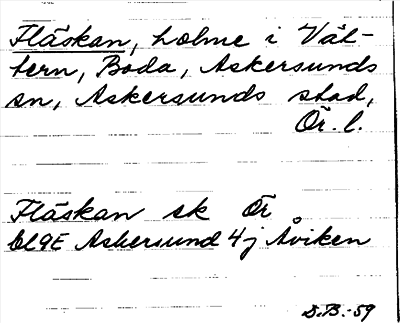 Fläskan, holme i Vät-
tern, Boda, Askersunds
sn, Askersunds stad,
Ör. l.
Fläskan sk Ör
8E9E Askersund 4j Åviken
S.B.-59